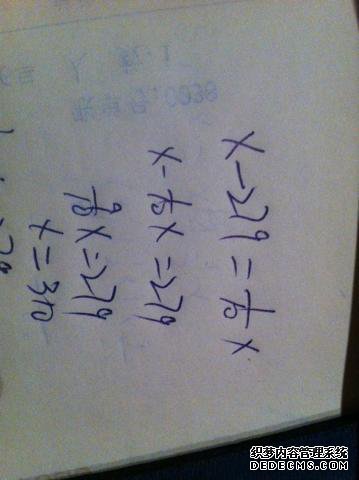 x-279=1/10 x
x-1/10 x=279
9/10 x=279
x=310
织梦内容管理系统
DEDECMS.COM